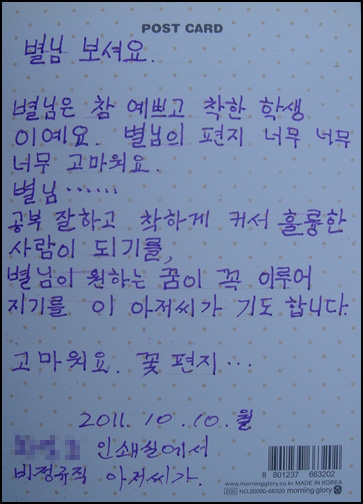 POST CARD
별님 보셔요.
별님은 참 예쁘고 착한 학생
이예요. 별님의 편지 너무 너무
너무 고마워요.
별님……
공부 잘하고 착하게 커서 훌륭한
사람이 되기를,
별님이 원하는 꿈이 꼭 이루어
지기를 이 아저씨가 기도 합니다.
고마워요. 꽃 편지…
2011. 10. 10. 월
인쇄실에서
비정규직 아저씨가.
8 801237 663202
www.morningglory.co.kr MADE IN KOREA
200 NO.20000-66320 morning glory